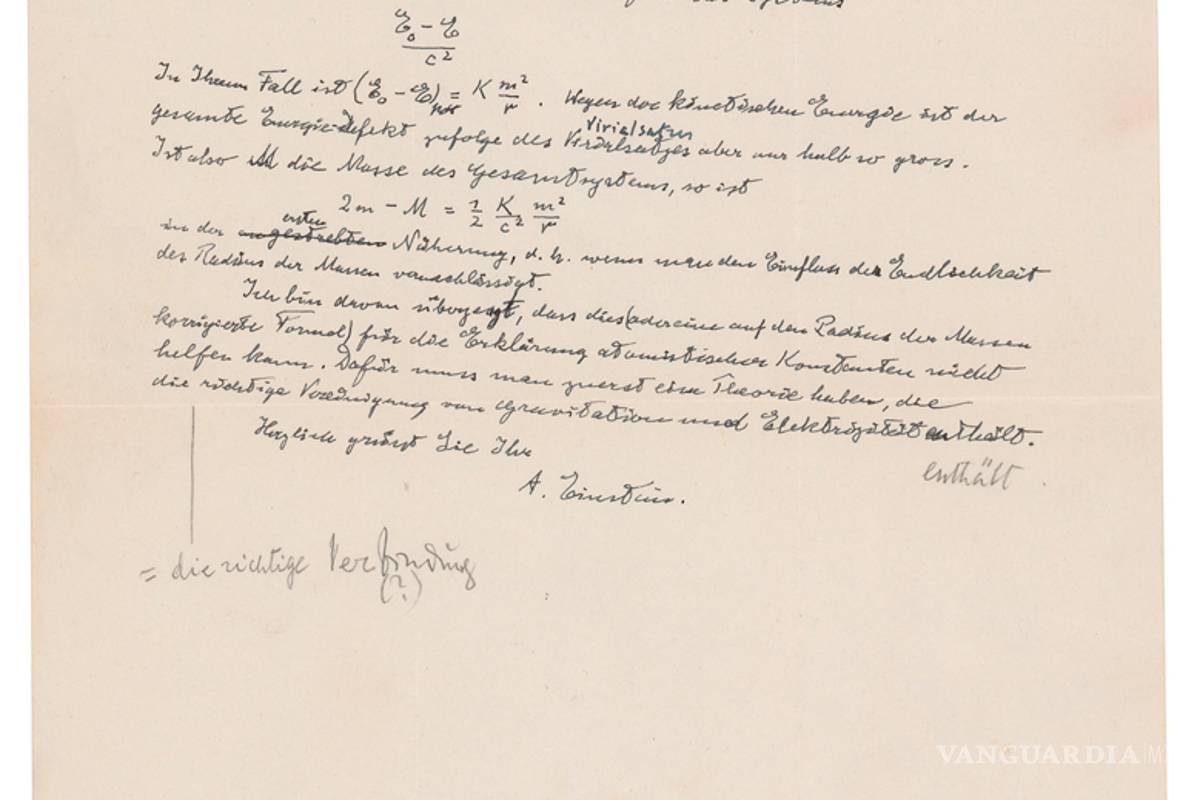 des Systems
E₀ – E
c²
In Ihrem Fall ist (E₀ – E)pot = K m²/r . Wegen der kinetischen Energie ist der
Virialsatzes
gesamte Energie-Defekt zufolge des Virialsatzes aber nur halb so gross.
Ist also M die Masse des Gesamtsystems, so ist
2m – M = 1/2 K/c² m²/r
ersten
in der angestrebten Näherung, d. h. wenn man den Einfluss der Endlichkeit
des Radius der Massen vernachlässigt.
Ich bin davon überzeugt, dass dies (oder eine auf den Radius der Massen
korrigierte Formel) für die Erklärung atomistischer Konstanten nicht
helfen kann. Dafür muss man zuerst eine Theorie haben, die
die richtige Vereinigung von Gravitation und Elektrizität enthält.
Herzlich grüsst Sie Ihr
enthält
A. Einstein.
= die richtige Verbindung
(?)
VANGUARDIA|M